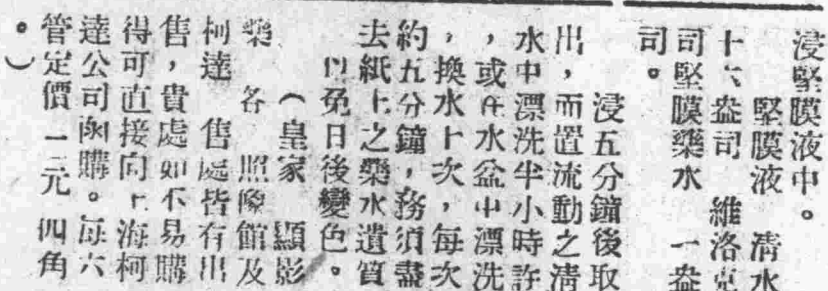 浸堅膜液中。
堅膜液　清水
十六盎司　維洛克
司堅膜藥水　一盎
司。
浸五分鐘後取
出，而置流動之清
水中漂洗半小時許
，或在水盆中漂洗
，換水十次，每次
約五分鐘，務須盡
去紙上之藥水遺質
以免日後變色。
（皇家　顯影
藥　各照像館及
柯達　售處皆有出
售，貴處如不易購
得可直接向上海柯
達公司函購。每六
管定價一元四角
。）